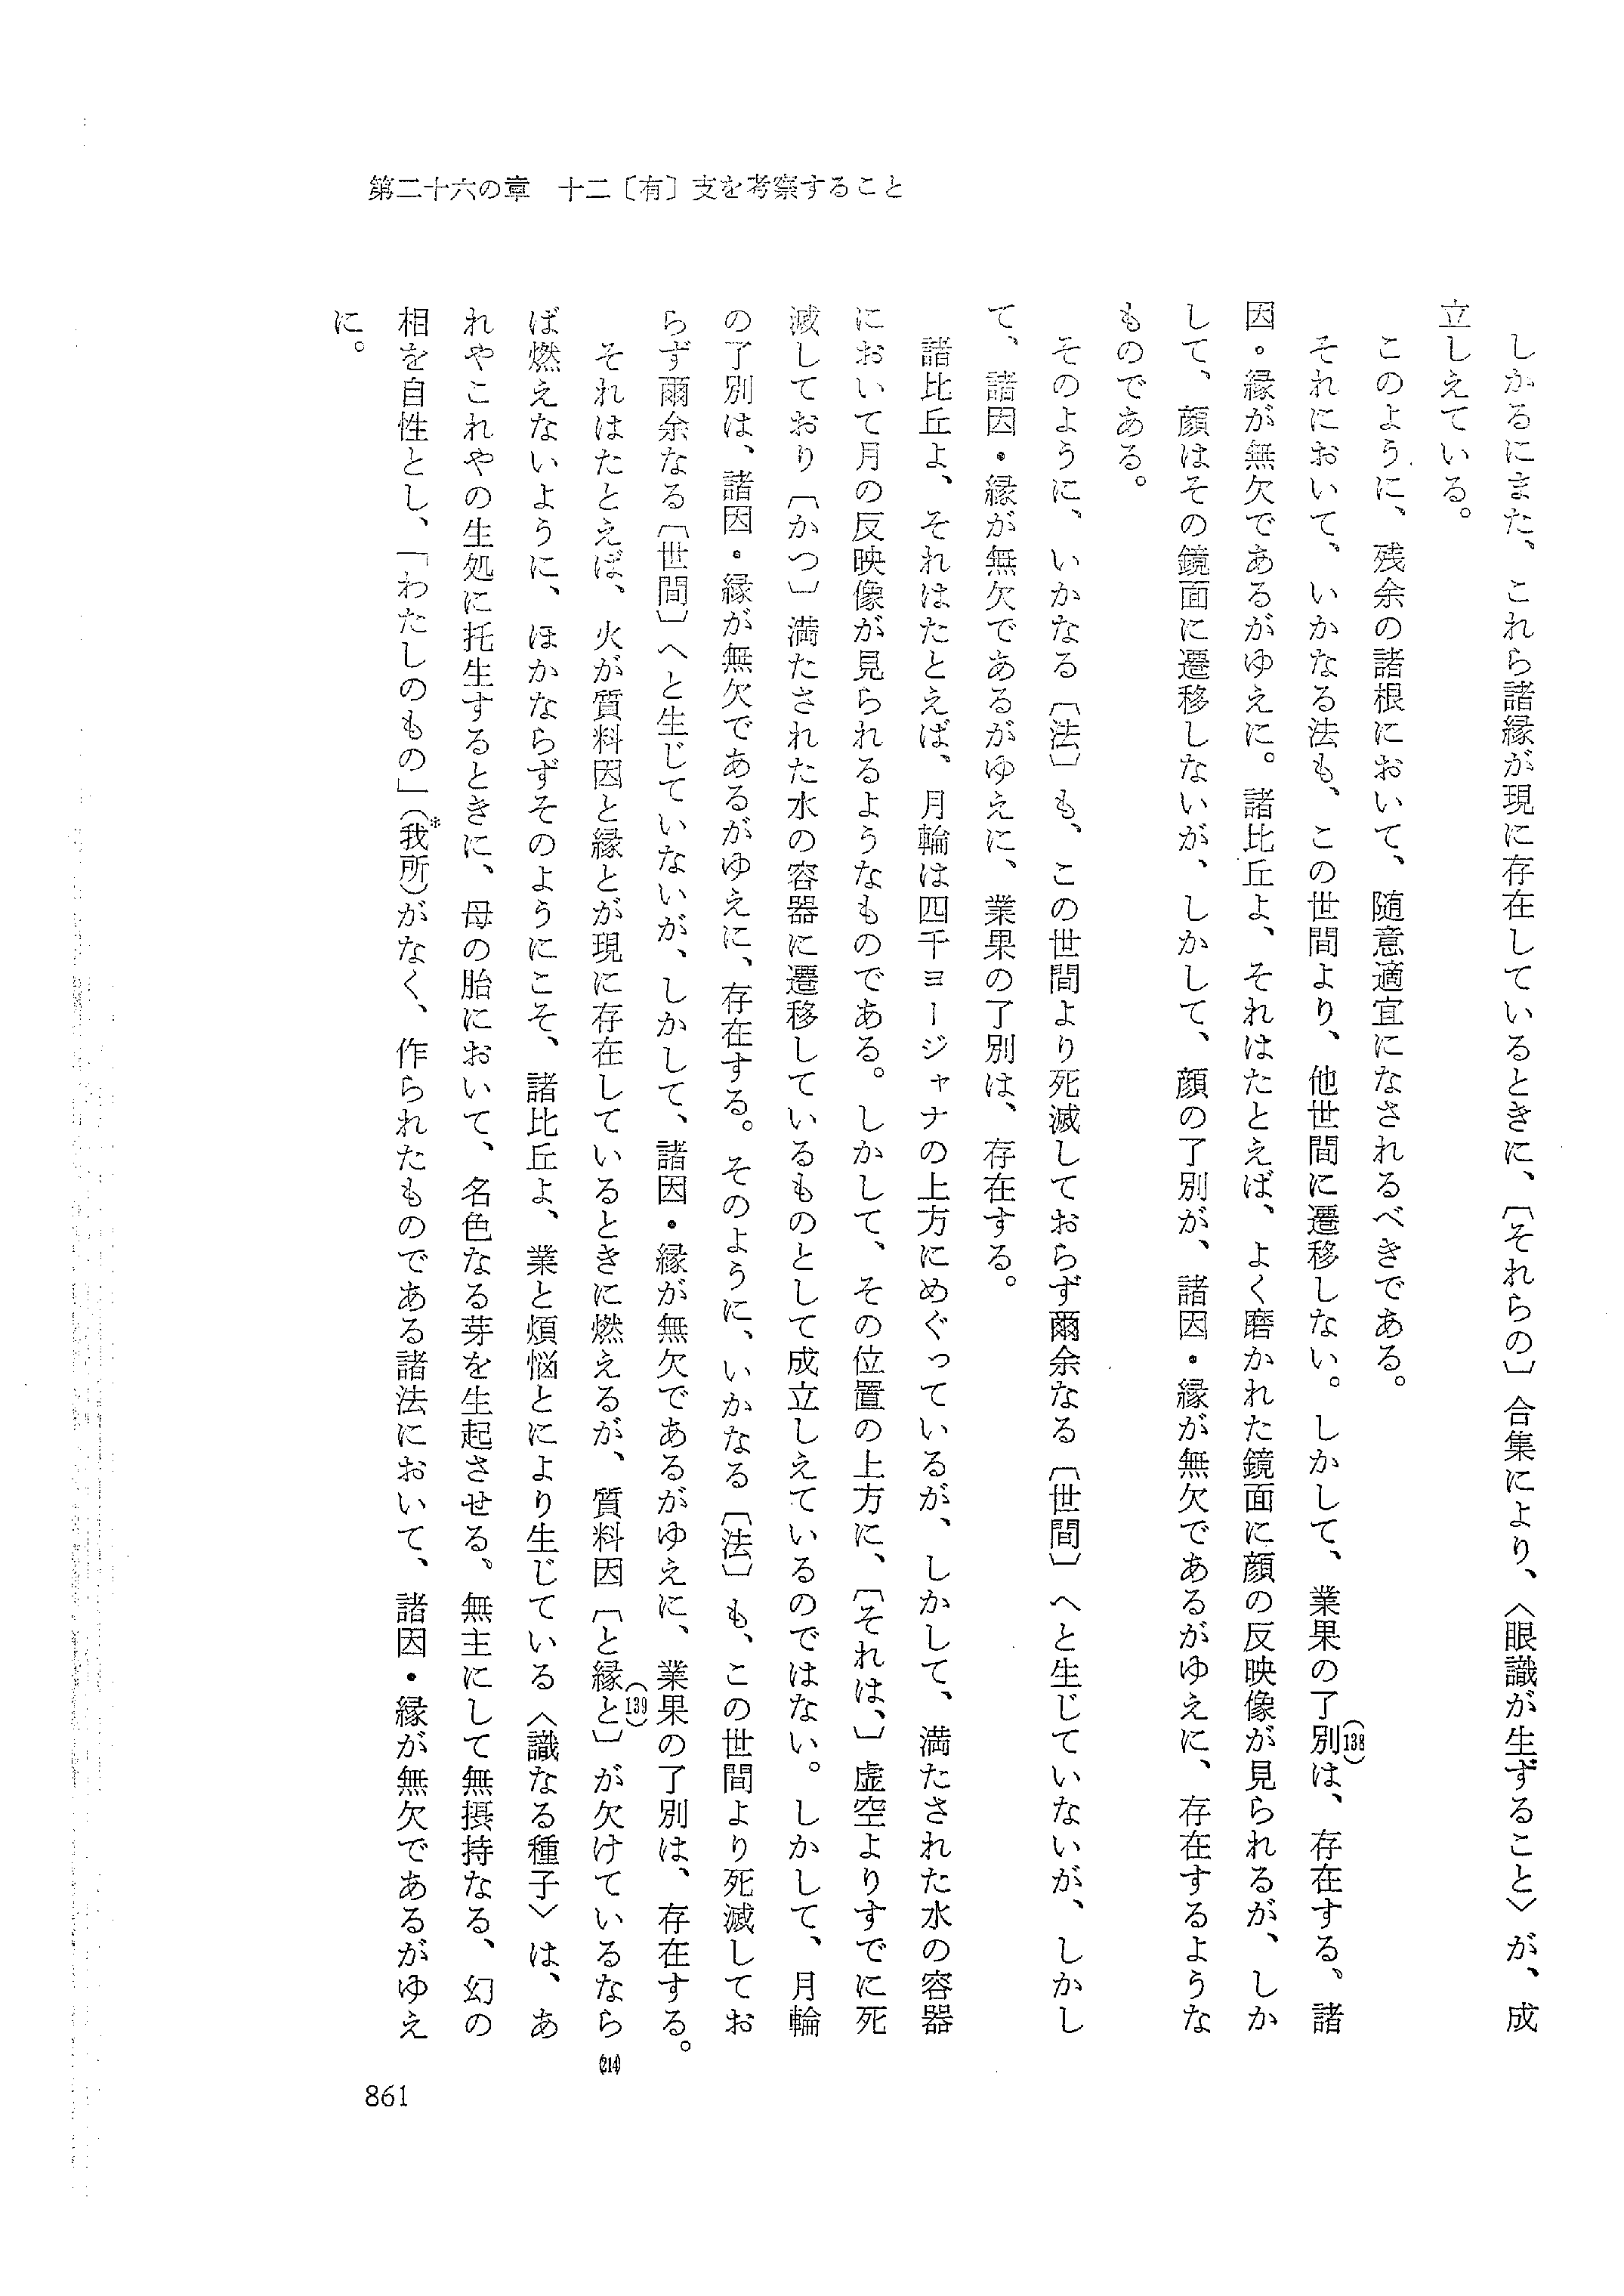 第二十六の章　十二〔有〕支を考察すること
しかるにまた、これら諸縁が現に存在しているときに、〔それらの〕合集により、〈眼識が生ずること〉が、成
立しえている。
このように、残余の諸根において、随意適宜になされるべきである。
それにおいて、いかなる法も、この世間より、他世間に遷移しない。しかして、業果の了別(138)は、存在する、諸
因・縁が無欠であるがゆえに。諸比丘よ、それはたとえば、よく磨かれた鏡面に顔の反映像が見られるが、しか
して、顔はその鏡面に遷移しないが、しかして、顔の了別が、諸因・縁が無欠であるがゆえに、存在するような
ものである。
そのように、いかなる〔法〕も、この世間より死滅しておらず爾余なる〔世間〕へと生じていないが、しかし
て、諸因・縁が無欠であるがゆえに、業果の了別は、存在する。
諸比丘よ、それはたとえば、月輪は四千ヨージャナの上方にめぐっているが、しかして、満たされた水の容器
において月の反映像が見られるようなものである。しかして、その位置の上方に、〔それは、〕虚空よりすでに死
滅しており〔かつ〕満たされた水の容器に遷移しているものとして成立しえているのではない。しかして、月輪
の了別は、諸因・縁が無欠であるがゆえに、存在する。そのように、いかなる〔法〕も、この世間より死滅してお
らず爾余なる〔世間〕へと生じていないが、しかして、諸因・縁が無欠であるがゆえに、業果の了別は、存在する。
それはたとえば、火が質料因と縁とが現に存在しているときに燃えるが、質料因〔と縁と〕(139)が欠けているなら
ば燃えないように、ほかならずそのようにこそ、諸比丘よ、業と煩悩とにより生じている〈識なる種子〉は、あ
れやこれやの生処に托生するときに、母の胎において、名色なる芽を生起させる。無主にして無摂持なる、幻の
相を自性とし、「わたしのもの」（我所*）がなく、作られたものである諸法において、諸因・縁が無欠であるがゆえ
に。
(214)
861